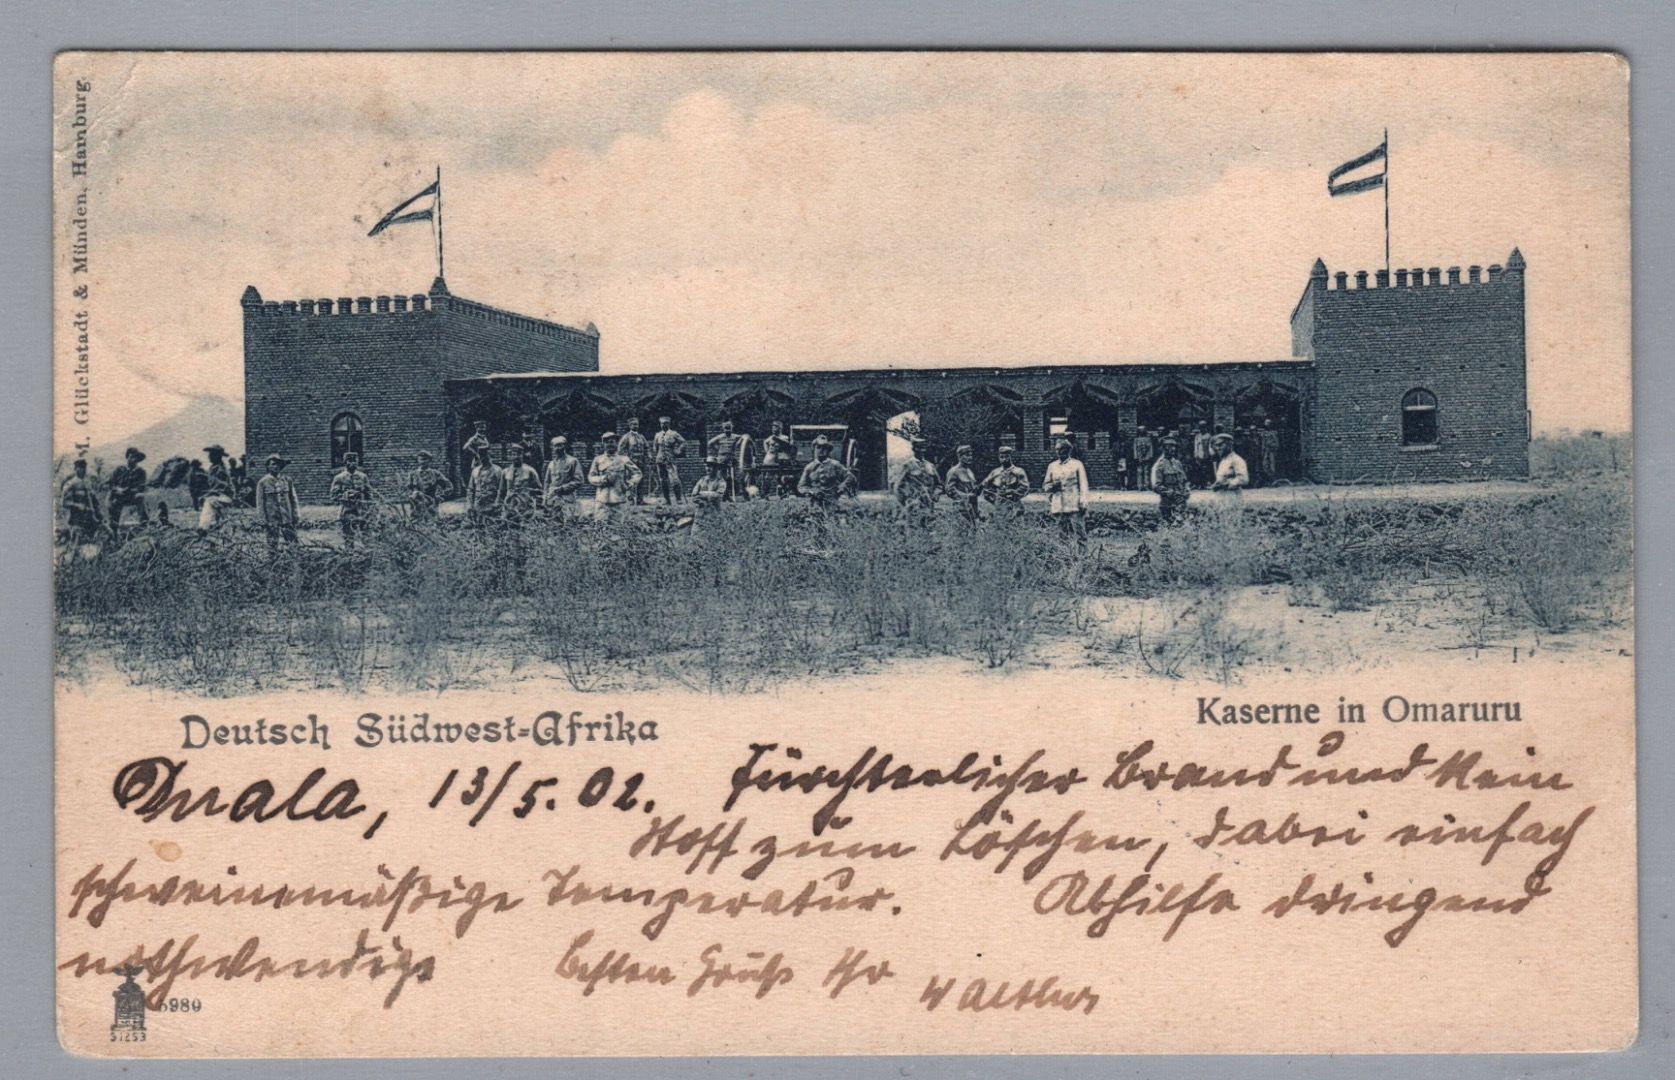 M. Glückstadt & Münden, Hamburg.
Deutsch Südwest-Afrika
Kaserne in Omaruru
Duala, 13/5. 02.
Fürchterlicher Brand und kein
Stoff zum Löschen, dabei einfach
schweinemäßige Temperatur. Abhilfe dringend
nothwendig
besten Gruß Ihr
5980
51253